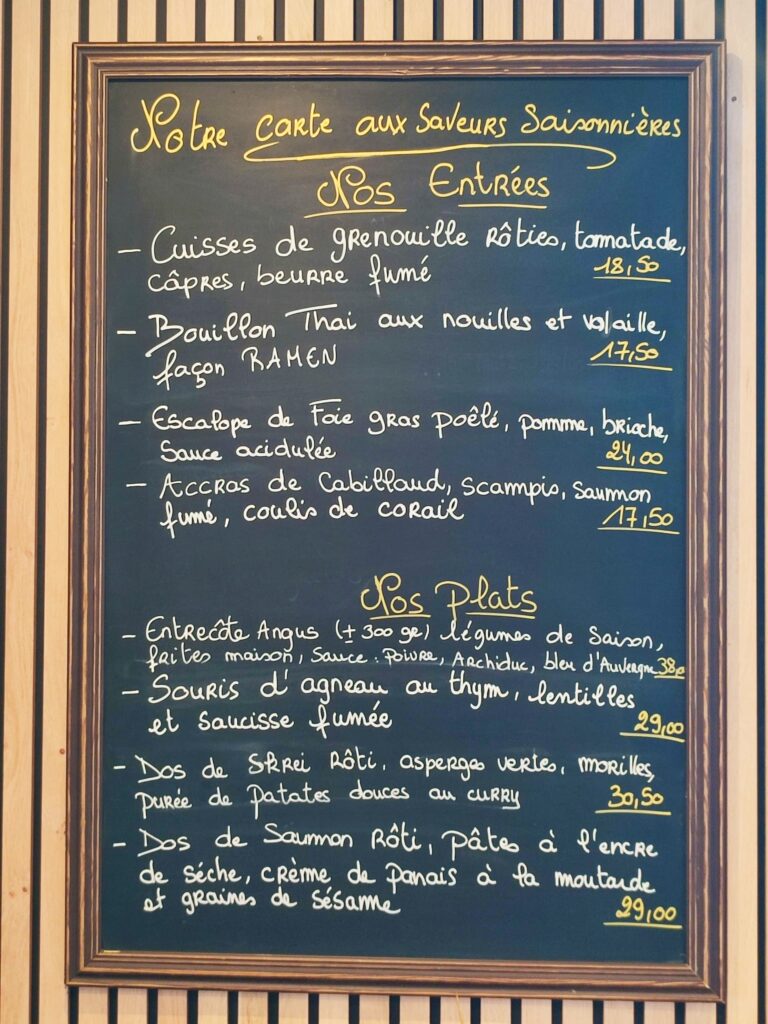 Notre carte aux saveurs saisonnières
Nos Entrées
- Cuisses de grenouille rôties, tomatade,
câpres, beurre fumé 18,50
- Bouillon Thai aux nouilles et volaille,
façon RAMEN 17,50
- Escalope de Foie gras poêlé, pomme, brioche,
sauce acidulée 24,00
- Accras de Cabillaud, scampis, saumon
fumé, coulis de corail 17,50
Nos Plats
- Entrecôte Angus (± 300 gr) légumes de saison,
faites maison, Sauce : Poivre, Archiduc, bleu d'Auvergne
- Souris d'agneau au thym, lentilles
et saucisse fumée 29,00
- Dos de Skrei rôti, asperges vertes, morilles,
purée de patates douces au curry 30,50
- Dos de Saumon rôti, pâtes à l'encre
de séche, crème de panais à la moutarde
et graines de sésame 29,00